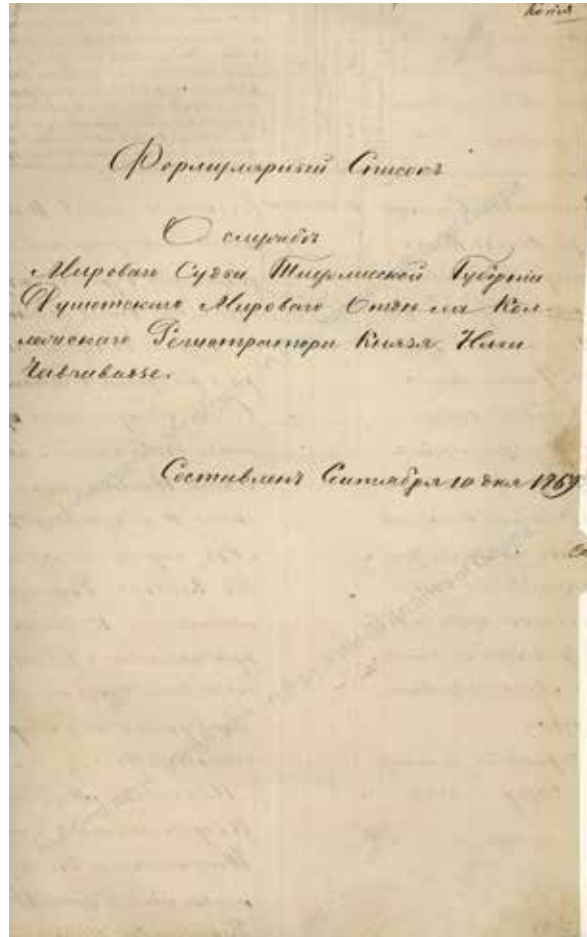 Копія
Формулярный Списокъ
О службѣ
Мироваго Судьи Тифлисской Губерніи
Душетскаго Мироваго Отдѣла Кол-
лежскаго Регистратора Князя Ильи
Чавчавадзе.
Составленъ Сентября 10 дня 1869